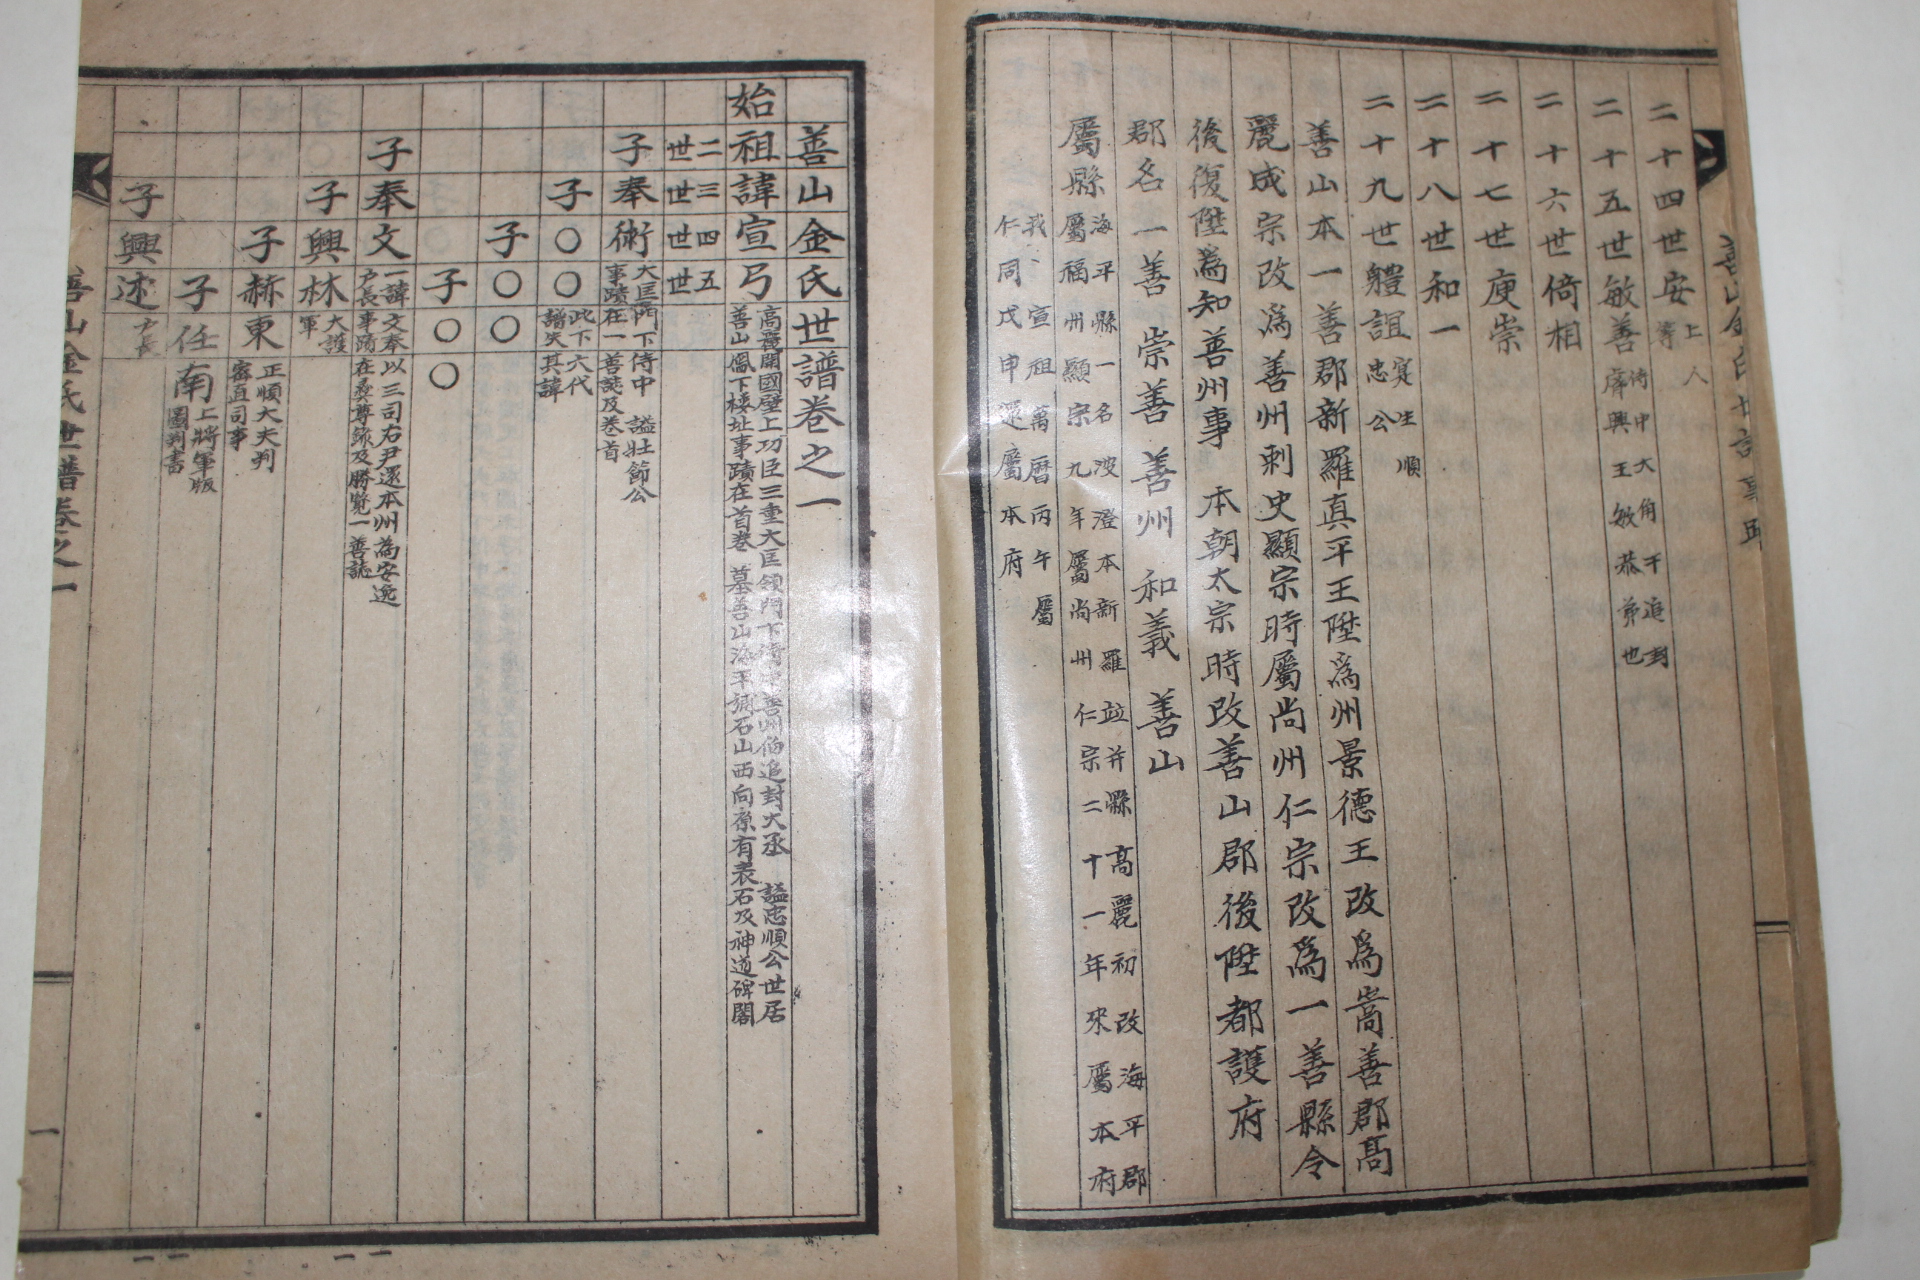 二十四世安上人等
二十五世敏善侍中大角干追封
庠興王敏恭弟也
二十六世倚相
二十七世庾崇
二十八世和一
二十九世體誼寔生順
忠公
善山本一善郡新羅真平王陞爲州景德王改爲嵩善郡高
麗成宗改爲善州刺史顯宗時屬尚州仁宗改爲一善縣令
後復陞爲知善州事 本朝太宗時改善山郡後陞都護府
郡名一善 崇善 善州 和義 善山
屬縣海平縣一名波澄本新羅並井縣高麗初改海平郡
屬福州顯宗九年屬尚州仁宗二十一年來屬本府
我宣祖萬曆丙午屬
仁同戊申還屬本府
善山金氏世譜卷之一
始祖諱宣弓高麗開國壁上功臣三重大匡領門下侍中善州伯追封大丞 謚忠順公世居
善山鳳下樓址事蹟在首卷 墓善山海平彌石山西向原有表石及神道碑閣
二世 三世 四世 五世
子奉術大匡門下侍中 謚壯節公
事蹟在一善誌及卷首
子〇〇此下六代
譜失其諱
子〇〇
子〇〇
子奉文一諱文奉以三司右尹還本州為安逸
戶長事蹟在彝尊錄及勝覽一善誌
子興林大護
軍
子赫東正順大夫判
密直司事
子任南上將軍版
圖判書
子興述戶長
善山金氏世譜卷之一
一